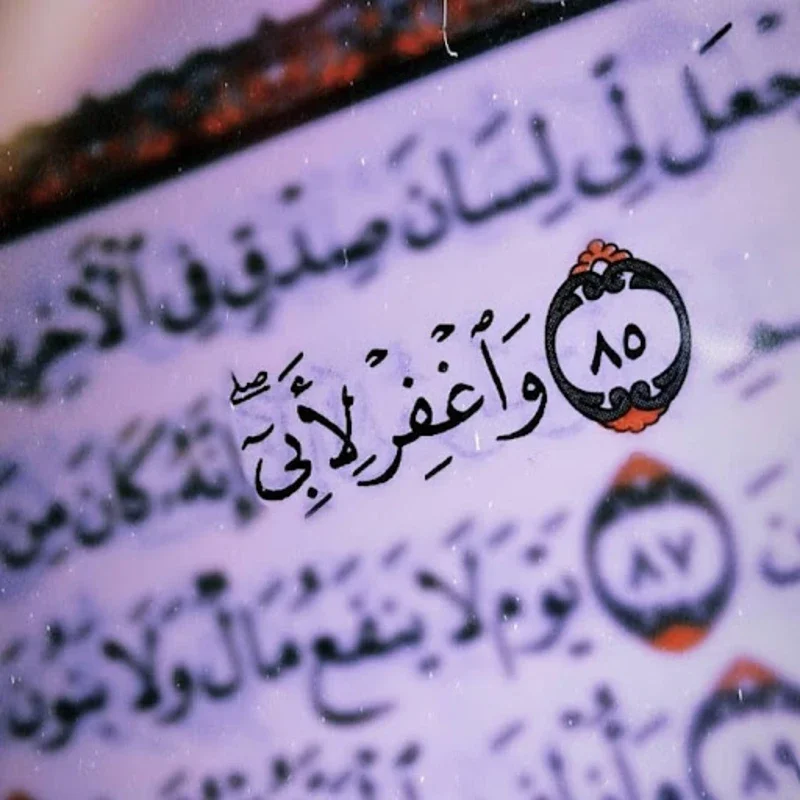 جْعَل لِّي لِسَانَ صِدْقٍ فِي ٱلْأَخِرِ
٨٥ وَٱغْفِرْ لِأَبِيٓ ۖ إِنَّهُۥ كَانَ مِنَ
٨٧ يَوْمَ لَا يَنفَعُ مَالٌ وَلَا بَنُونَ
٨٩